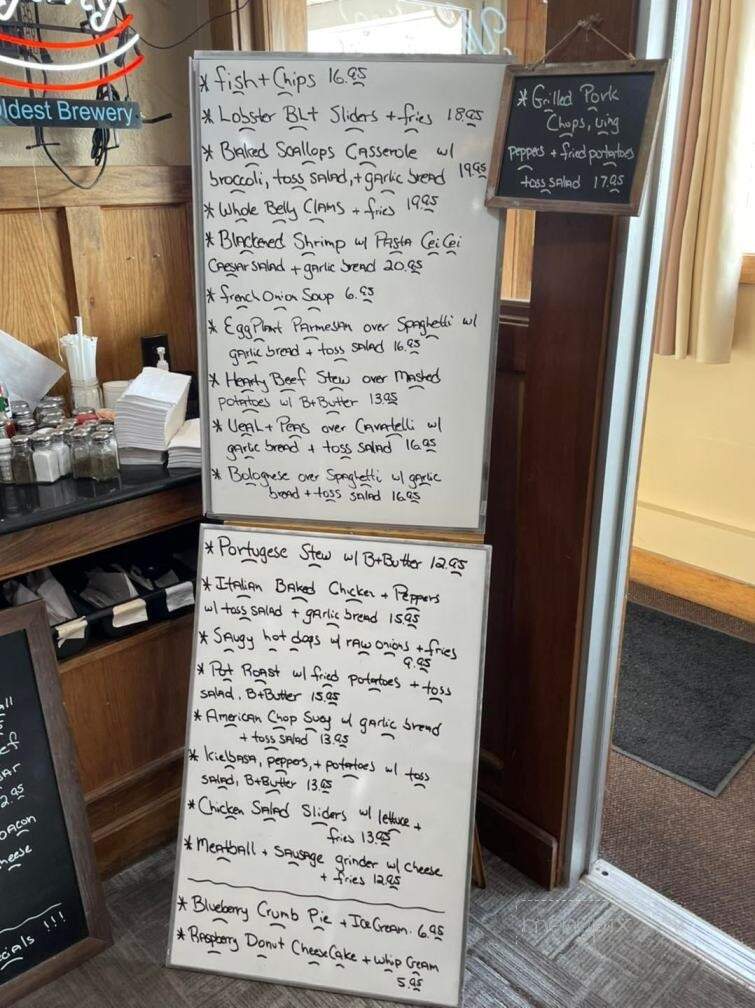 oldest Brewery
* fish + Chips 16.95
* Lobster BLT Sliders + fries 18.95
* Baked Scallops Casserole w/
broccoli, toss salad, + garlic bread 19.95
* Whole Belly Clams + fries 19.95
* Blackened Shrimp w/ Pasta CeiCei
Caesar salad + garlic bread 20.95
* french Onion Soup 6.95
* EggPlant Parmesan over Spaghetti w/
garlic bread + toss salad 16.95
* Hearty Beef Stew over Mashed
potatoes w/ B+Butter 13.95
* Veal + Peas over Cavatelli w/
garlic bread + toss salad 16.95
* Bolognese over Spaghetti w/ garlic
bread + toss salad 16.95
* Grilled Pork
Chops, ving
peppers + fried potatoes
toss salad 17.95
* Portugese Stew w/ B+Butter 12.95
* Italian Baked Chicken + Peppers
w/ toss salad + garlic bread 15.95
* Saugy hot dogs w/ raw onions + fries
9.95
* Pot Roast w/ fried potatoes + toss
salad, B+Butter 15.95
* American Chop Suey w/ garlic bread
+ toss salad 13.95
* kielbasa, peppers, + potatoes w/ toss
salad, B+Butter 13.95
* Chicken Salad Sliders w/ lettuce +
fries 13.95
* Meatball + sausage grinder w/ cheese
+ fries 12.95
* Blueberry Crumb Pie + Ice Cream. 6.95
* Raspberry Donut CheeseCake + whip Cream
5.95
2.95
bacon
cheese
cials !!!